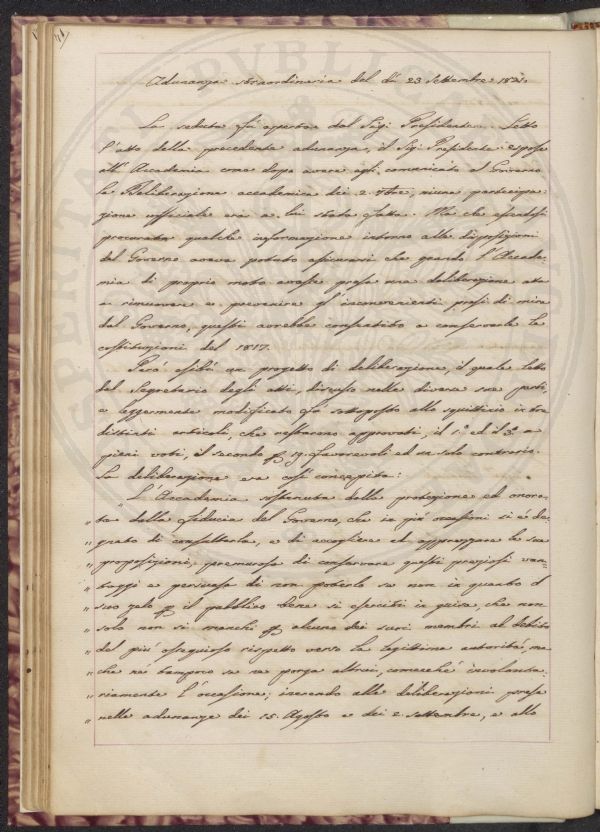 41
Adunanza straordinaria del dì 23 Settembre 1821.
La seduta fu aperta dal Sig. Presidente. Letto
l'atto della precedente adunanza, il Sig. Presidente espose
all'Accademia come dopo avere egli comunicato al Governo
la Deliberazione accademica dei 2. 7bre, niuna partecipa-
zione ufficiale era a lui stata fatta. Ma che essendosi
procurata qualche informazione intorno alle disposizioni
del Governo aveva potuto assicurarsi che quando l'Accade-
mia di proprio moto avesse presa una deliberazione atta
a rimuovere e prevenire gl'inconvenienti presi di mira
dal Governo, questi avrebbe consentito a conservare le
costituzioni del 1817.
Però esibì un progetto di deliberazione, il quale letto
dal Segretario degli atti, discusso nelle diverse sue parti,
e leggermente modificato fu sottoposto allo squittinio in tre
distinti articoli, che restarono approvati, il 1º ed il 3º a
pieni voti, il secondo per 19. favorevoli ed un solo contrario.
La deliberazione era così concepita:
"L'Accademia sostenuta dalla protezione ed onora-
" ta della fiducia del Governo, che in più occasioni si è de-
" gnato di consultarla, e di accogliere ed apprezzare le sue
" proposizioni; premurosa di conservare questi preziosi van-
" taggi e persuasa di non poterlo se non in quanto il
" suo zelo per il pubblico bene si eserciti in guisa, che non
" solo non si manchi per alcuno dei suoi membri al debito
" del più ossequioso rispetto verso la legittima autorità, ma
" che nè tampoco se ne porga altrui, comecchè involonta-
" riamente l'occasione; inerendo alle deliberazioni prese
" nelle adunanze dei 15. Agosto e dei 2. Settembre, e allo